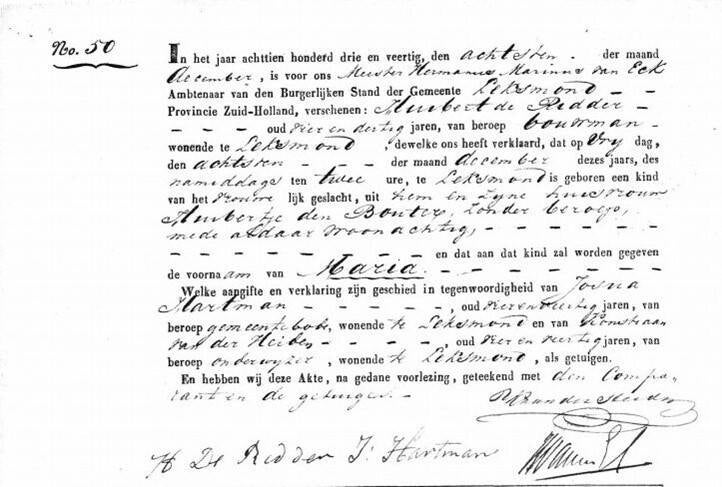 No. 50
In het jaar achttien honderd drie en veertig, den achtsten - der maand
December, is voor ons Meester Hermanus Marinus van Eck
Ambtenaar van den Burgerlijken Stand der Gemeente Leksmond - -
Provincie Zuid-Holland, verschenen: Huibert de Ridder -
- - - oud vier en dertig jaren, van beroep bouwman -
wonende te Leksmond, dewelke ons heeft verklaard, dat op Vry dag,
den achtsten - - - der maand december dezes jaars, des
namiddags ten twee ure, te Leksmond is geboren een kind
van het vrouwe lijk geslacht, uit hem en zyne huisvrouw
Huibertje den Bouter, zonder beroep,
mede aldaar woonachtig, - - - - - -
- - - - - - - - en dat aan dat kind zal worden gegeven
de voornaam van Maria. - - - - - -
Welke aangifte en verklaring zijn geschied in tegenwoordigheid van Josua
Hartman - - - - -, oud jaren, van
beroep gemeentebode, wonende te Leksmond en van
van der Heiden - - - - oud vier en veertig jaren, van
beroep onderwyzer, wonende te Leksmond, als getuigen.
En hebben wij deze Akte, na gedane voorlezing, geteekend met den Compa-
rant en de getuigen. -
H De Ridder J: Hartman